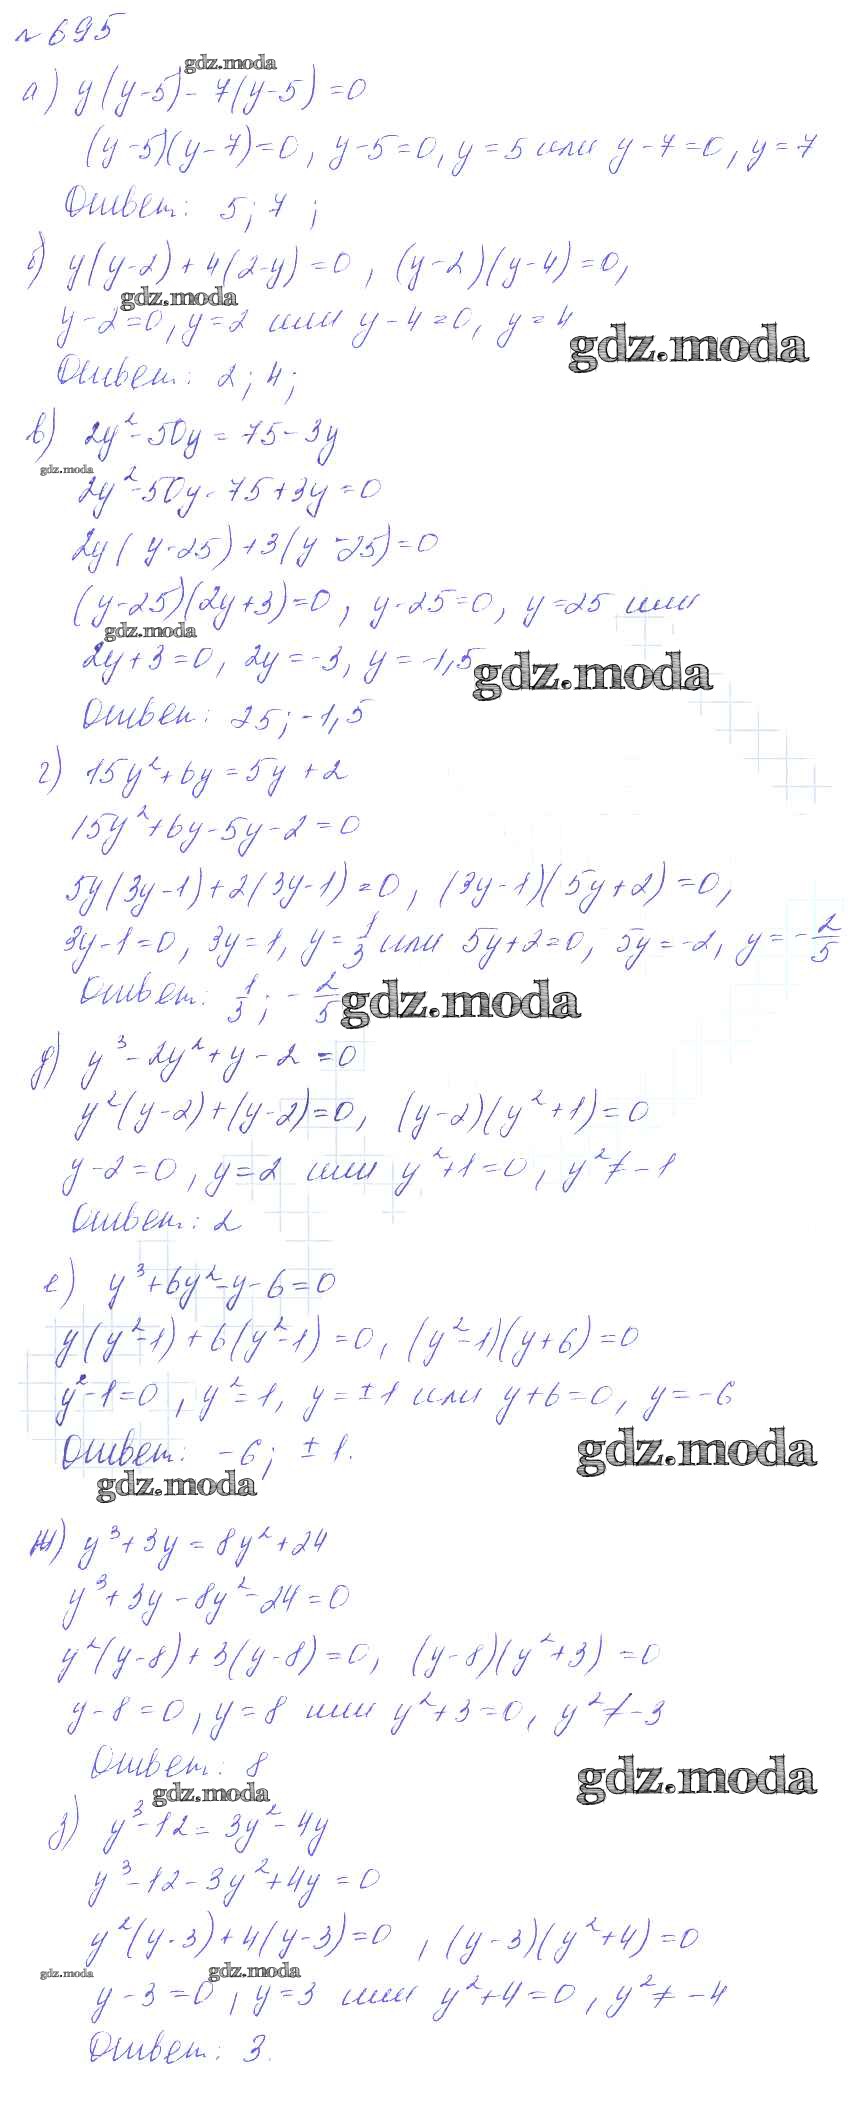 № 695
gdz.moda
а) y(y-5)-7(y-5)=0
(y-5)(y-7)=0, y-5=0, y=5 или y-7=0, y=7
Ответ: 5; 7;
б) y(y-2)+4(2-y)=0, (y-2)(y-4)=0,
gdz.moda
y-2=0, y=2 или y-4=0, y=4
gdz.moda
Ответ: 2; 4;
в) 2y²-50y=75-3y
gdz.moda
2y²-50y-75+3y=0
2y(y-25)+3(y-25)=0
(y-25)(2y+3)=0, y-25=0, y=25 или
gdz.moda
2y+3=0, 2y=-3, y=-1,5
gdz.moda
Ответ: 25; -1,5
г) 15y²+6y=5y+2
15y²+6y-5y-2=0
5y(3y-1)+2(3y-1)=0, (3y-1)(5y+2)=0,
3y-1=0, 3y=1, y=1/3 или 5y+2=0, 5y=-2, y=-2/5
Ответ: 1/3; -2/5
gdz.moda
д) y³-2y²+y-2=0
y²(y-2)+(y-2)=0, (y-2)(y²+1)=0
y-2=0, y=2 или y²+1=0, y²≠-1
Ответ: 2
е) y³+6y²-y-6=0
y(y²-1)+6(y²-1)=0, (y²-1)(y+6)=0
y²-1=0, y²=1, y=±1 или y+6=0, y=-6
Ответ: -6; ±1.
gdz.moda
gdz.moda
ж) y³+3y=8y²+24
y³+3y-8y²-24=0
y²(y-8)+3(y-8)=0, (y-8)(y²+3)=0
y-8=0, y=8 или y²+3=0, y²≠-3
Ответ: 8
gdz.moda
gdz.moda
з) y³-12=3y²-4y
y³-12-3y²+4y=0
y²(y-3)+4(y-3)=0, (y-3)(y²+4)=0
gdz.moda
gdz.moda
y-3=0, y=3 или y²+4=0, y²≠-4
Ответ: 3.